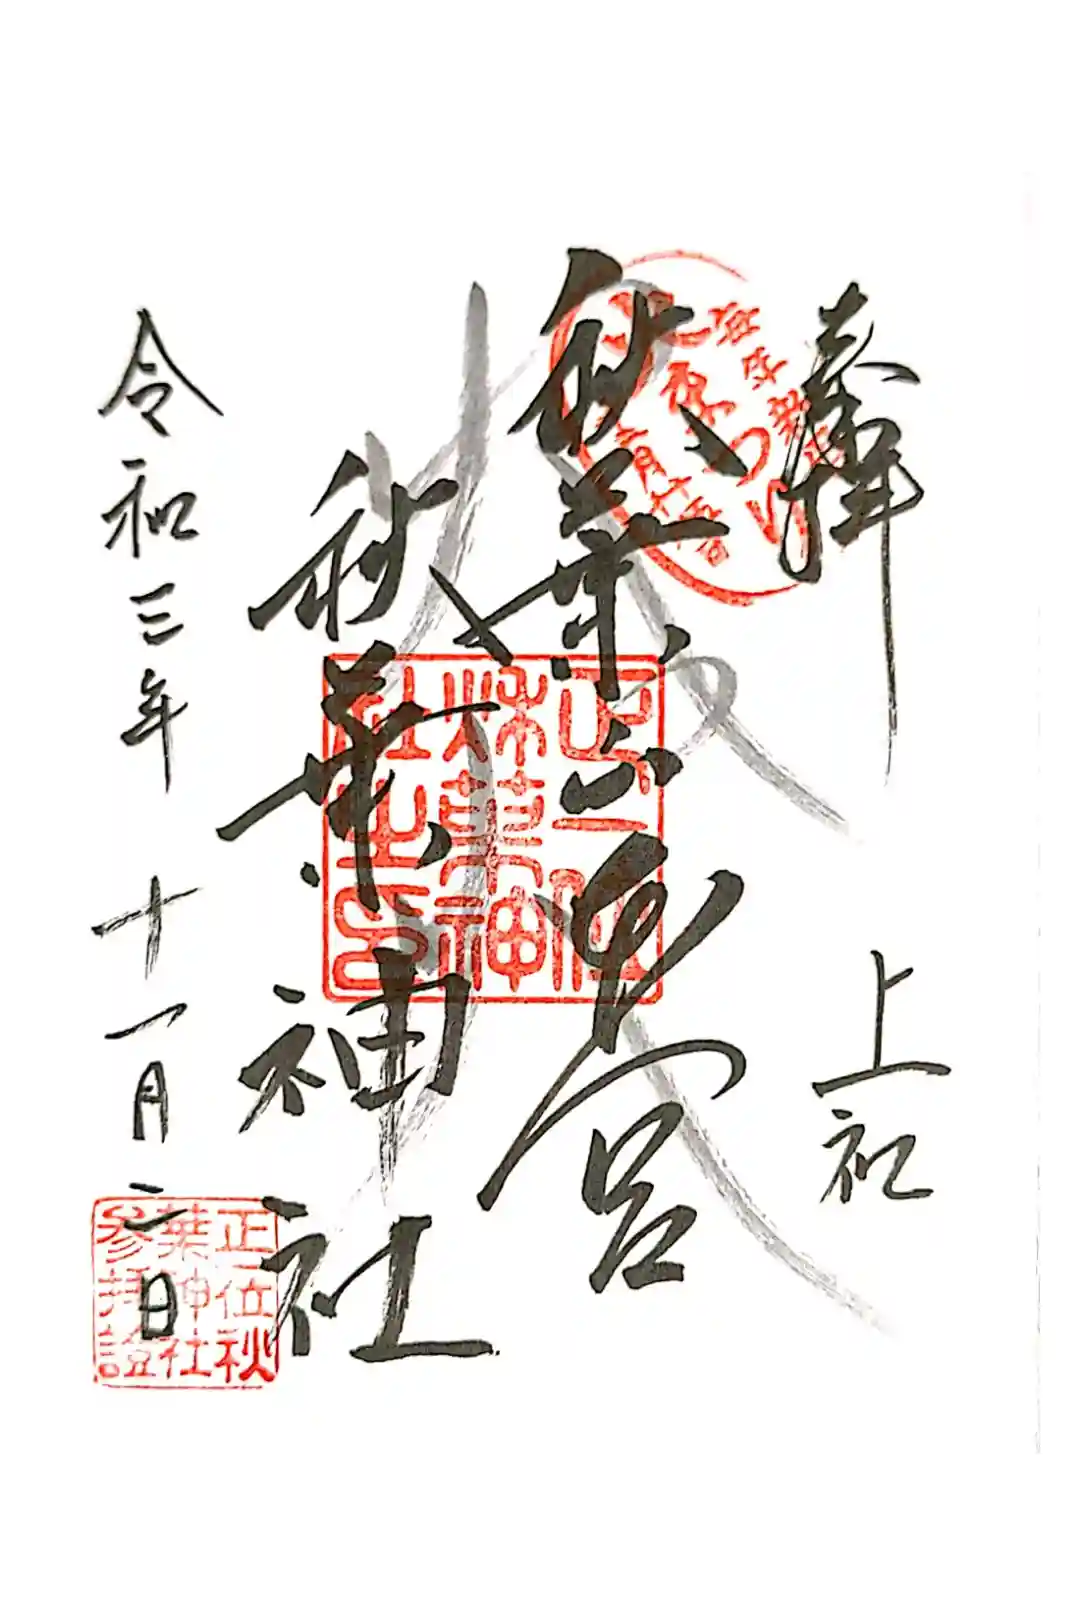 奉拝
上社
秋葉山本宮
秋葉神社
令和三年十一月二日
火
正一位
秋葉神
社之印
正一位秋
葉神社
参拝證